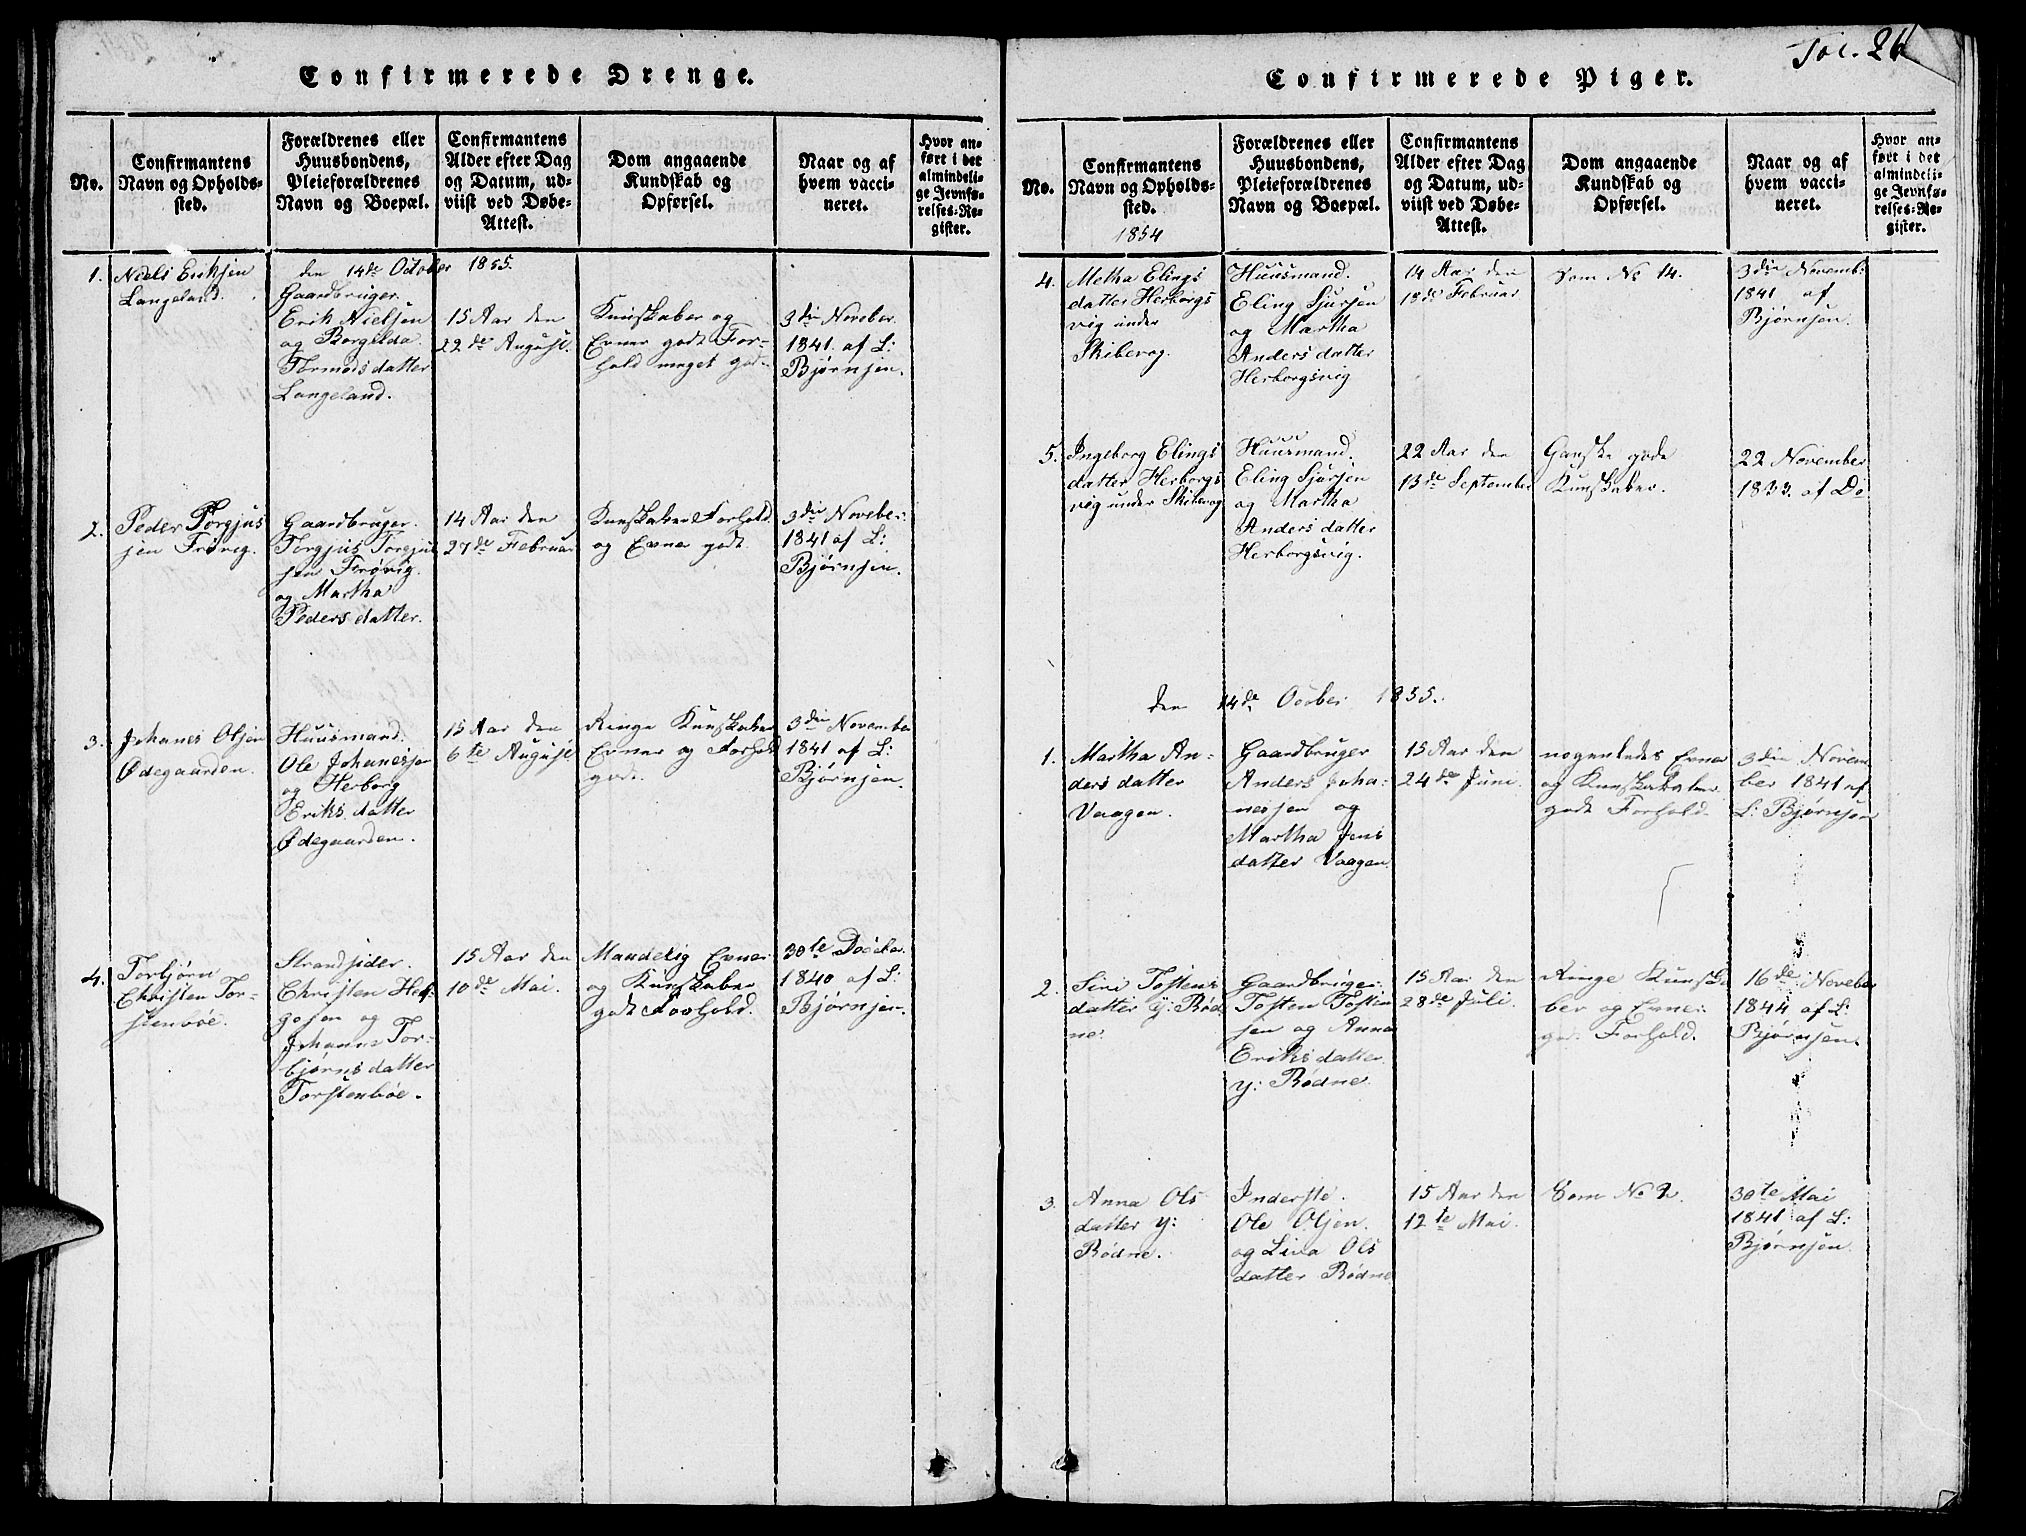 Fol. 26
Confirmerede Drenge.
No.
Confirmantens
Navn og Opholds-
sted.
Forældrenes eller
Huusbondens,
Pleieforældrenes
Navn og Boepæl.
Confirmantens
Alder efter Dag
og Datum, ud-
viist ved Døbe-
Attest.
Dom angaaende
Kundskab og
Opførsel.
Naar og af
hvem vacci-
neret.
Hvor an-
ført i det
almindeli-
ge Jevnfø-
relses-Re-
gister.
den 14de October 1855.
1.
Niels Eriksen
Langeland.
Gaardbruger.
Erik Nielsen
og Borgelda
Tormodsdatter
Langeland.
15 Aar den
22de August.
Kunskaber og
Evner godt For-
hold meget godt
3die Noveber
1841. af L:
Bjørnsen.
2.
Peder Torgjus
sen Frøvig.
Gaardbruger.
Torgjus Torgjus
sen Frøvig.
og Martha
Peders datter.
14 Aar den
27de Februar
Kunskaber Forhold
og Evner godt
3die Noveber.
1841 af L:
Bjørnsen.
3.
Johanes Olsen
Ødegaarden.
Huusmand.
Ole Johanesen
og Herborg
Eriks datter
Ødegaarden.
15 Aar den
6te August
Ringe Kunskaber
Evner og Forhold
godt.
3die November
1841 af L:
Bjørnsen.
4.
Torbjørn
Christen Tor-
stenbøe.
Strandsider.
Christen Hel-
gesen og
Johanna Tor-
bjørnsdatter
Torstenbøe.
15 Aar den
10de Mai.
Maadelig Evner
og Kunskaber
godt Forhold.
30te Deceber.
1840 af L:
Bjørnsen.
Confirmerede Piger.
No.
Confirmantens
Navn og Opholds-
sted.
1854
Forældrenes eller
Huusbondens,
Pleieforældrenes
Navn og Boepæl.
Confirmantens
Alder efter Dag
og Datum, ud-
viist ved Døbe-
Attest.
Dom angaaende
Kundskab og
Opførsel.
Naar og af
hvem vacci-
neret.
Hvor an-
ført i det
almindeli-
ge Jevnfø-
relses-Re-
gister.
4.
Metha Elings
datter Herborgs
vig under
Skibevog.
Huusmand.
Eling Sjursen
og Martha
Anders datter
Herborgsvig
14 Aar den
18de Februar
Som No 14.
3die Novemb.
1841 af
Bjørnsen.
5.
Ingeborg Elings
datter Herborgs
vig under Skibevog
Huusmand.
Eling Sjursen
og Martha
Anders datter
Herborgsvig.
22 Aar den
13de September
Ganske gode
Kunskaber.
22 November
1833. af Do
den 14de Ocober 1855.
1.
Martha An-
ders datter
Vaagen.
Gaardbruger
Anders Joha-
nessen og
Martha Jens
datter Vaagen
15 Aar den
24de Juni.
nogenledes Evner
og Kunskaber
godt Forhold.
3die Novem
ber 1841 af
L: Bjørnsen
2.
Sini Tostens
datter y: Rød-
ne.
Gaardbruger
Tosten Tosten
sen og Anna
Eriks datter
y: Rødne
15 Aar den
28de Juli.
Ringe Kunska
ber og Evner
godt Forhold.
16de Noveber
1844 af L:
Bjørnsen.
3.
Anna Ols
datter y:
Rødne.
Inderste.
Ole Olsen.
og Liva Ols
datter Rødne
15 Aar den
12te Mai.
Som No 2.
30te Mai
1841 af L:
Bjørnsen.